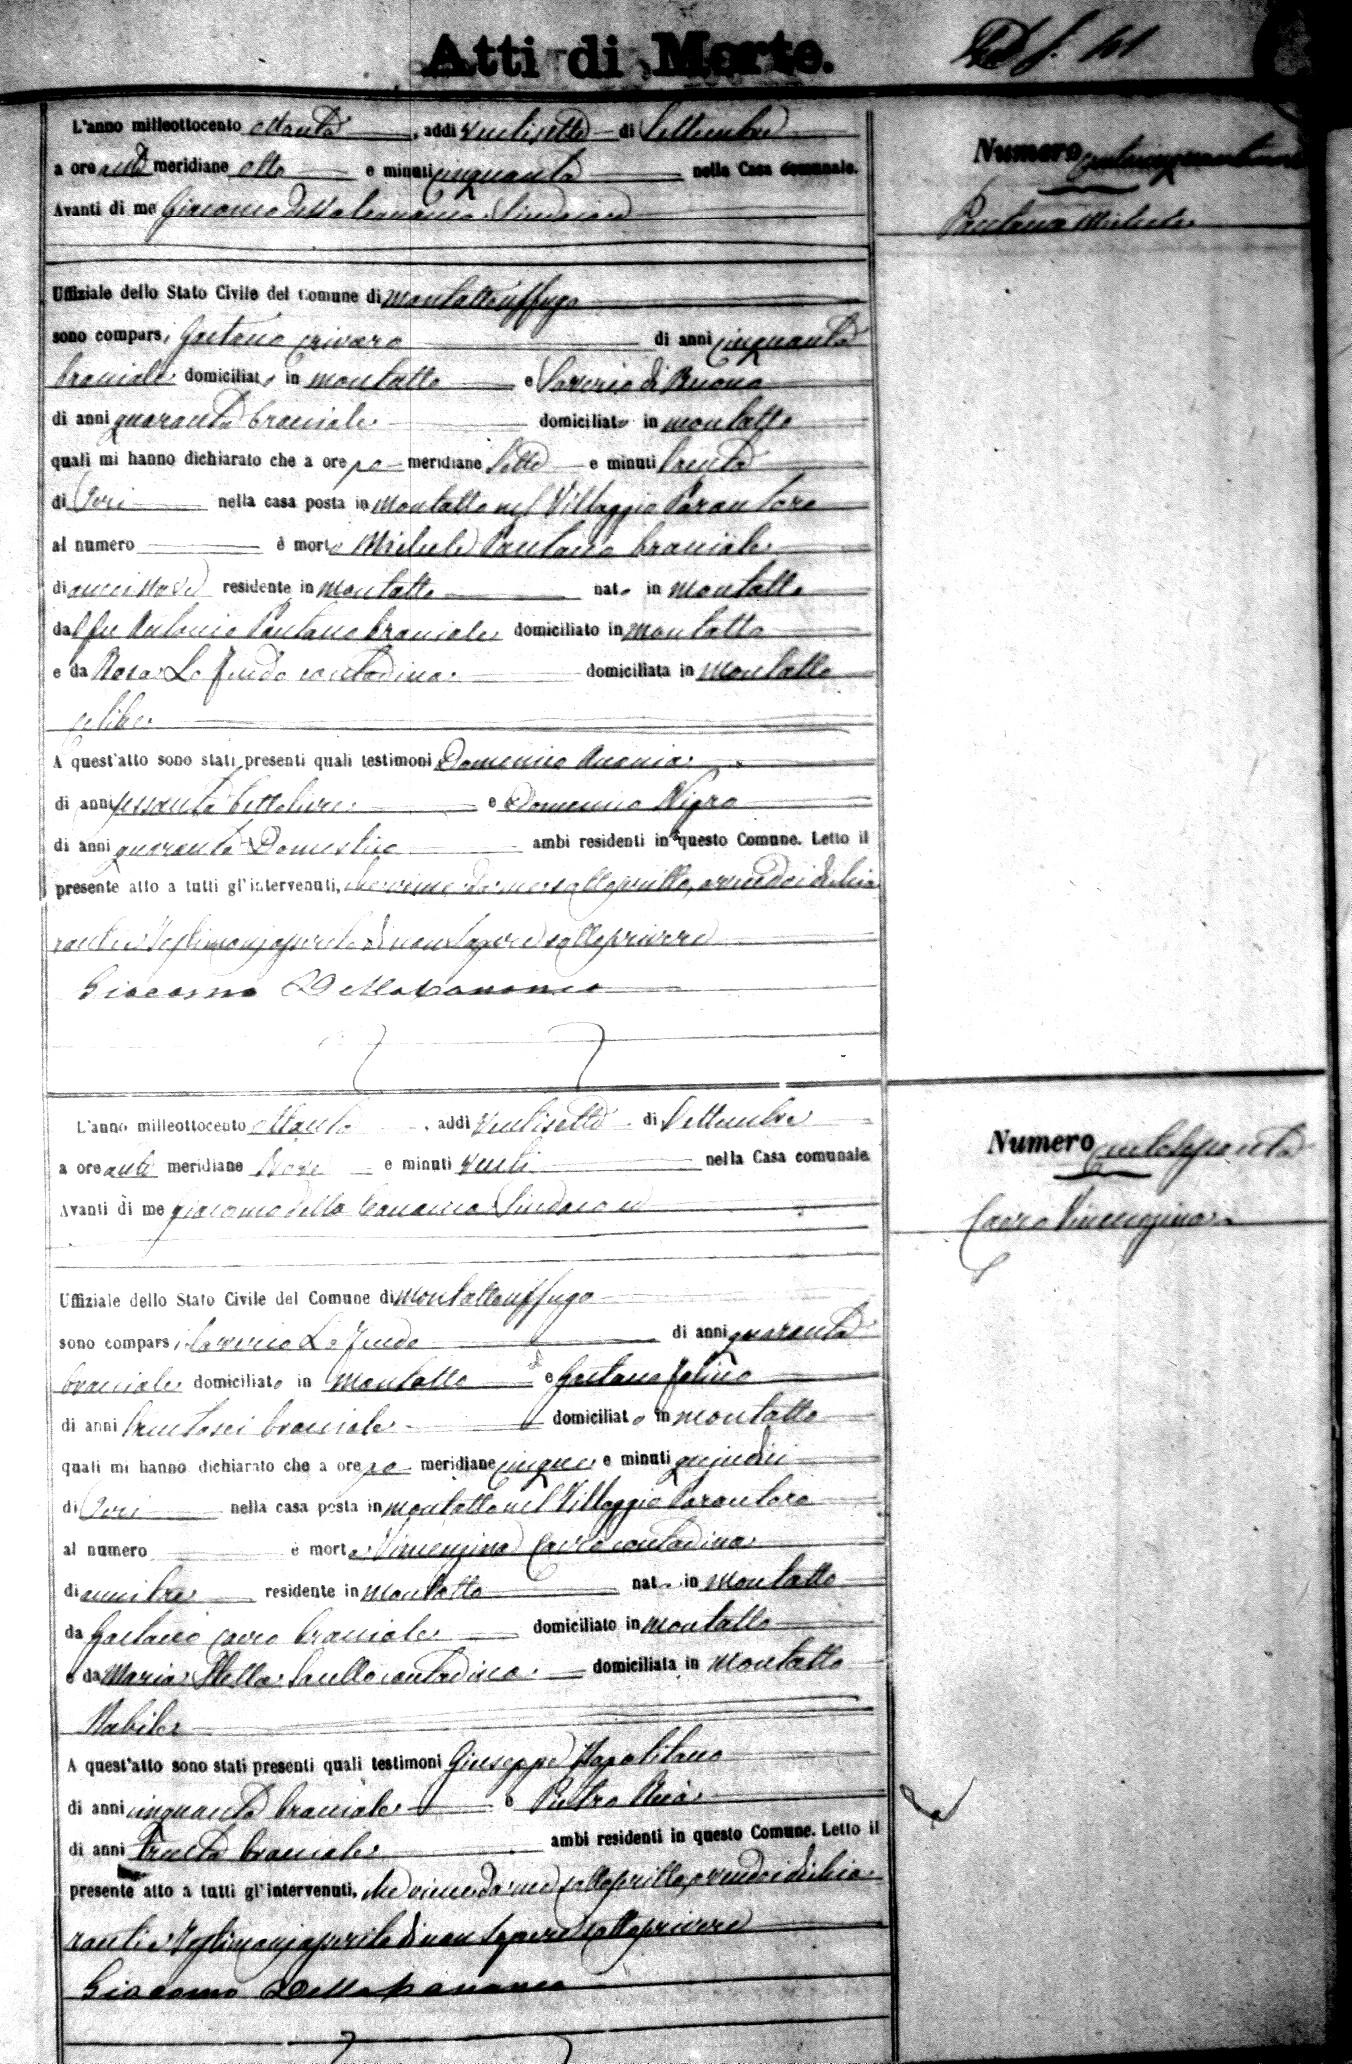 Atti di Morte.
L'anno milleottocento ottanta, addì ventisette di Settembre
a ore anti meridiane otto e minuti cinquanta nella Casa comunale.
Avanti di me Giacomo Sindaco ed
Uffiziale dello Stato Civile del Comune di Montaltouffugo
sono comparsi Gaetano Crivaro di anni cinquanta
bracciale domiciliato in Montalto e Saverio di Buono
di anni quaranta bracciale domiciliato in Montalto
quali mi hanno dichiarato che a ore po meridiane sette e minuti trenta
di Ieri nella casa posta in Montalto nel Villaggio Parantoro
al numero è morto Michele Pantano bracciale
di anni nove residente in Montalto nato in Montalto
dal fu Antonio Pantano bracciale domiciliato in Montalto
e da Rosa Lo Feudo contadina domiciliata in Montalto
celibe
A quest'atto sono stati presenti quali testimoni Domenico Anania
di anni sessanta bettoliere e Domenico Nigro
di anni quaranta Domestico ambi residenti in questo Comune. Letto il
presente atto a tutti gl'intervenuti, che viene da me sottoscritto, avendo i dichia
ranti e Testimonj asserito di non sapere sottoscrivere
Giacomo
Numero
Pantano Michele
L'anno milleottocento ottanta, addì ventisette di Settembre
a ore anti meridiane Nove e minuti venti nella Casa comunale.
Avanti di me Giacomo Sindaco ed
Uffiziale dello Stato Civile del Comune di Montaltouffugo
sono comparsi Saverio Lo Feudo di anni quaranta
bracciale domiciliato in Montalto e Gaetano
di anni trentasei bracciale domiciliato in Montalto
quali mi hanno dichiarato che a ore po meridiane cinque e minuti quindici
di Ieri nella casa posta in Montalto nel Villaggio Parantoro
al numero è morta Vincenzina contadina
di anni tre residente in Montalto nata in Montalto
da Gaetano bracciale domiciliato in Montalto
e da Maria Stella contadina domiciliata in Montalto
Nubile
A quest'atto sono stati presenti quali testimoni Giuseppe Napolitano
di anni cinquanta bracciale e Pietro
di anni Trenta bracciale ambi residenti in questo Comune. Letto il
presente atto a tutti gl'intervenuti, che viene da me sottoscritto, avendo i dichia
ranti e Testimonj asserito di non sapere sottoscrivere
Giacomo
Numero centosessanta
Vincenzina